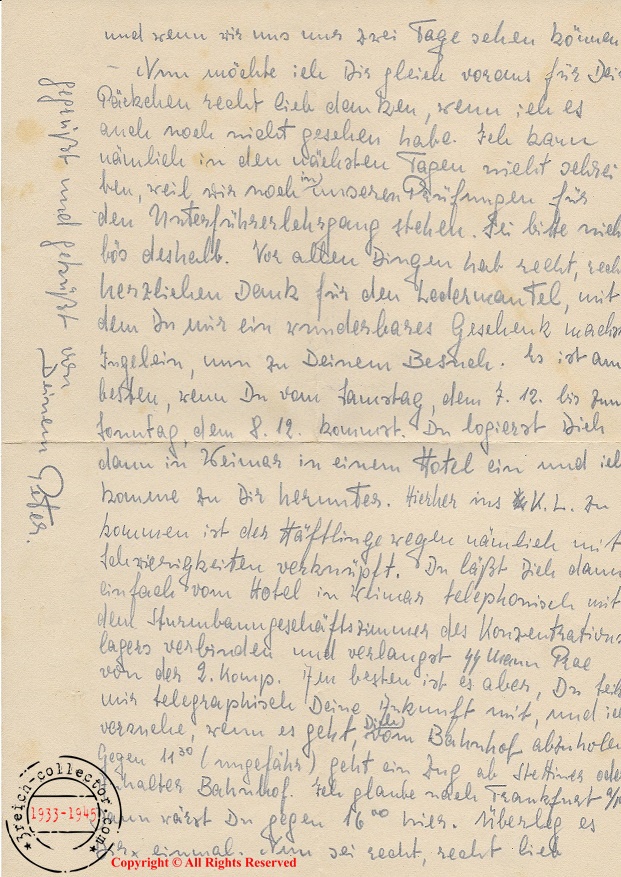 und wenn wir uns nur zwei Tage sehen können
– Nun möchte ich Dir gleich voraus für Dei
Päckchen recht lieb danken, wenn ich es
auch noch nicht gesehen habe. Ich kann
nämlich in den nächsten Tagen nicht schrei
ben, weil wir noch in unseren Prüfungen für
den Unterführerlehrgang stehen. Sei bitte nich
bös deshalb. Vor allen Dingen hab recht, rech
herzlichen Dank für den Ledermantel, mit
dem Du mir ein wunderbares Geschenk machs
Ingelein, nun zu Deinem Besuch. Es ist am
besten, wenn Du vom Samstag, dem 7. 12. bis zum
Sonntag, dem 8. 12. kommst. Du logierst Dich
dann in Weimar in einem Hotel ein und ich
komme zu Dir herunter. Hierher ins K. L. zu
kommen ist der Häftlinge wegen nämlich mit
Schwierigkeiten verknüpft. Du läßt Dich dann
einfach vom Hotel in Weimar telephonisch mit
dem Sturmbanngeschäftszimmer des Konzentrations
lagers verbinden und verlangst SS Mann
von der 2. Komp. Am besten ist es aber, Du teil
mir telegraphisch Deine Ankunft mit, und ich
versuche, wenn es geht, Dich vom Bahnhof abzuholen
Gegen 11 30 (ungefähr) geht ein Zug ab Stettiner oder
Anhalter Bahnhof. Ich glaube nach Frankfurt a/M
Dann wärst Du gegen 16 00 hier. Überleg es
Dir einmal. Nun sei recht, recht lieb
gegrüßt und geküßt von
Deinem Peter.
3reich-collector.com
1933-1945
Copyright © All Rights Reserved